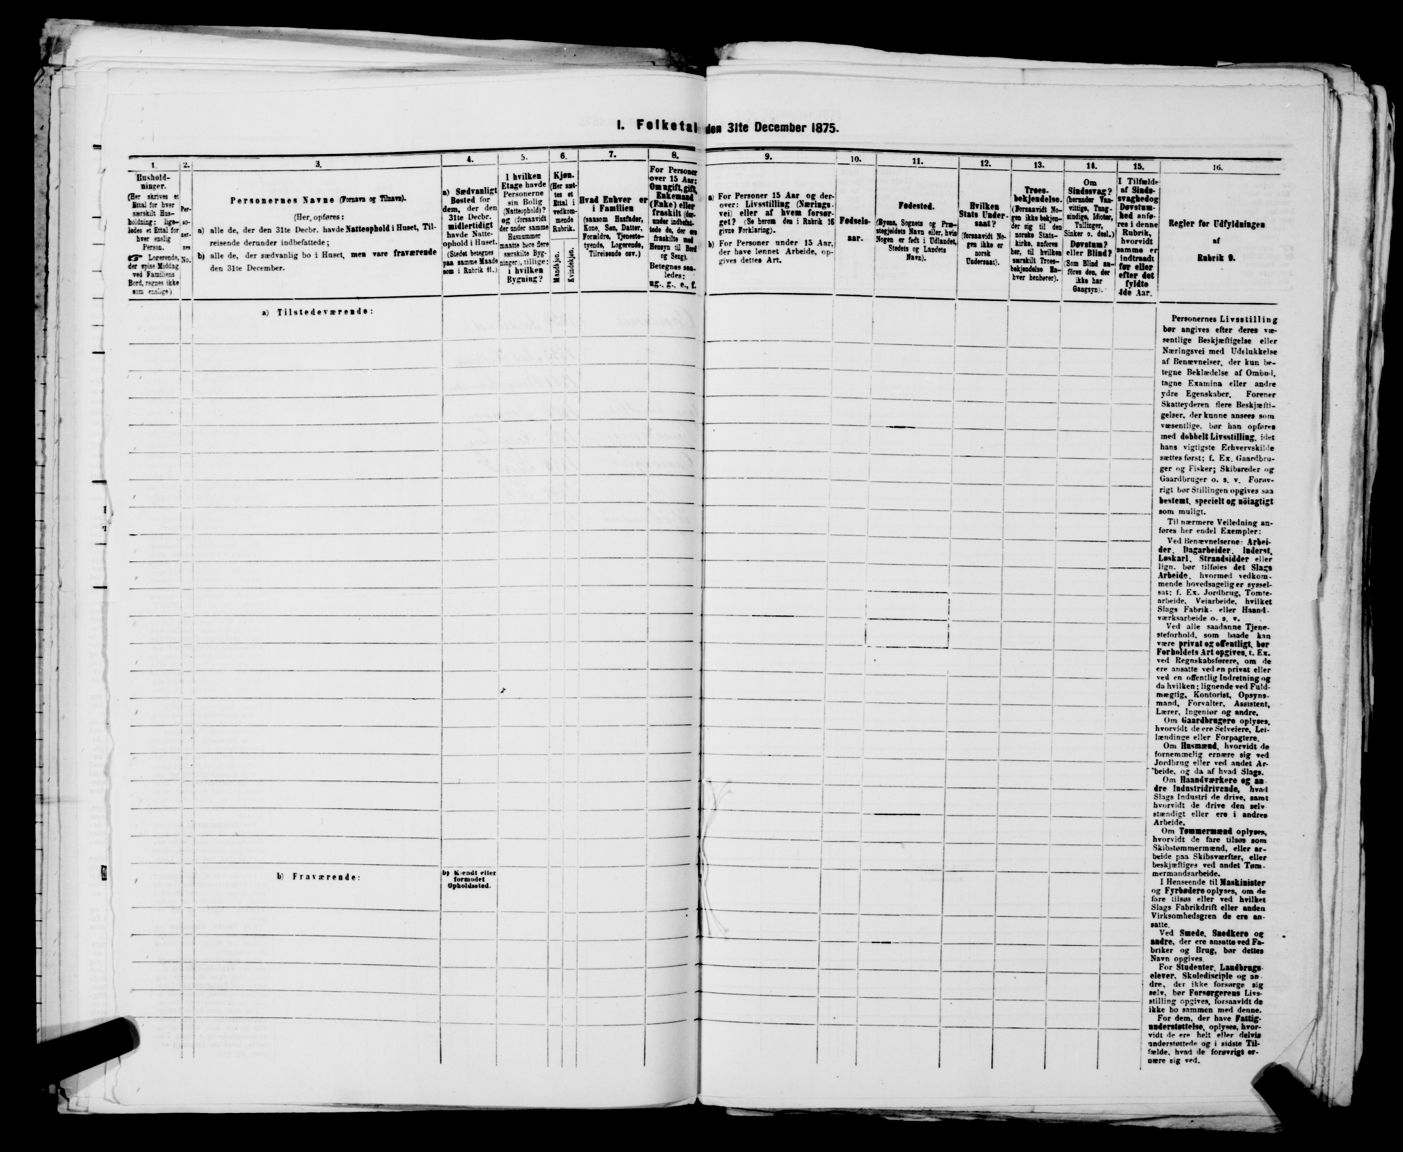 I. Folketal den 31te December 1875.
1.
Hushold-
ninger.
(Her skrives et
Ettal for hver
særskilt Hus-
holdning; lige-
ledes et Ettal for
hver enslig
Person.
☞ Logerende,
der spise Middag
ved Familiens
Bord, regnes ikke
som enslige).
2.
Per-
so-
ner-
nes
No.
3.
Personernes Navne (Fornavn og Tilnavn).
(Her, opføres:
a) alle de, der den 31te Decbr. havde Natteophold i Huset, Til-
reisende derunder indbefattede;
b) alle de, der sædvanlig bo i Huset, men vare fraværende
den 31te December.
4.
a) Sædvanligt
Bosted for
dem, der den
31te Decbr.
midlertidigt
havde Natte-
ophold i Huset.
(Stedet betegnes
paa samme Maade
som i Rubrik 11.)
5.
I hvilken
Etage havde
Personerne
sin Bolig
(Natteophold)?
og (forsaavidt
der under samme
Husnummer
maatte høre flere
særskilte Byg-
ninger), tillige:
i hvilken
Bygning?
6.
Kjøn.
(Her sæt-
tes et
Ettal i
vedkom-
mende
Rubrik.
Mandkjøn.
Kvindekjøn.
7.
Hvad Enhver er
i Familien
(saasom Husfader,
Kone, Søn, Datter,
Forældre, Tjeneste-
tyende, Logerende,
Tilreisende osv.)
8.
For Personer
over 15 Aar:
Om ugift, gift,
Enkemand
(Enke) eller
fraskilt (der-
under indbefat-
tede de, der ere
fraskilte med
Hensyn til Bord
og Seng).
Betegnes saa-
ledes:
ug., g., e., f.
9.
a) For Personer 15 Aar og der-
over: Livsstilling (Nærings-
vei) eller af hvem forsør-
get? (Se herom den i Rubrik 16
givne Forklaring).
b) For Personer under 15 Aar,
der have lønnet Arbeide, op-
gives dettes Art.
10.
Fødsels-
aar.
11.
Fødested.
(Byens, Sognets og Præ-
stegjeldets Navn eller, hvis
Nogen er født i Udlandet,
Stedets og Landets
Navn).
12.
Hvilken
Stats Under-
saat?
(forsaavidt No-
gen ikke er
norsk
Undersaat).
13.
Troes-
bekjendelse.
(Forsaavidt No-
gen ikke bekjen-
der sig til den
norske Stats-
kirke, anføres
her, til hvilken
særskilt Troes-
bekjendelse En-
hver henhører).
14.
Om
Sindssvag?
(herunder Van-
vittige, Tung-
sindige, Idioter,
Tullinger,
Sinker o. desl.)
Døvstum?
eller Blind?
(Som Blind an-
føres den, der
ikke har
Gangsyn).
15.
I Tilfælde
af Sinds-
svaghed og
Døvstum-
hed anfø-
res i denne
Rubrik,
hvorvidt
samme er
indtraadt
før eller
efter det
fyldte
4de Aar.
16.
Regler for Udfyldningen
af
Rubrik 9.
a) Tilstedeværende:
b) Fraværende:
b) Kjendt eller
formodet
Opholdssted.
Personernes Livsstilling
bør angives efter deres væ-
sentlige Beskjæftigelse eller
Næringsvei med Udelukkelse
af Benævnelser, der kun be-
tegne Beklædelse af Ombud,
tagne Examina eller andre
ydre Egenskaber. Forener
Skatteyderen flere Beskjæfti-
gelser, der kunne ansees som
væsentlige, bør han opføres
med dobbelt Livsstilling, idet
hans vigtigste Erhvervskilde
sættes først; f. Ex. Gaardbru-
ger og Fisker; Skibsreder og
Gaardbruger o. s. v. Forøv-
rigt bør Stillingen opgives saa
bestemt, specielt og nøiagtigt
som muligt.
Til nærmere Veiledning an-
føres her endel Exempler:
Ved Benævnelserne: Arbei-
der, Dagarbeider, Inderst,
Løskarl, Strandsidder eller
lign. bør tilføies det Slags
Arbeide, hvormed vedkom-
mende hovedsagelig er syssel-
sat; f. Ex. Jordbrug, Tomte-
arbeide, Veiarbeide, hvilket
Slags Fabrik- eller Haand-
værksarbeide o. s. v.
Ved alle saadanne Tjene-
steforhold, som baade kan
være privat og offentligt, bør
Forholdets Art opgives, f. Ex.
ved Regnskabsførere, om de
ere ansatte ved en privat eller
ved en offentlig Indretning og
da hvilken; lignende ved Fuld-
mægtig, Kontorist, Opsyns-
mand, Forvalter, Assistent,
Lærer, Ingeniør og andre.
Om Gaardbrugere oplyses,
hvorvidt de ere Selveiere, Lei-
lændinge eller Forpagtere.
Om Husmænd, hvorvidt de
fornemmelig ernære sig ved
Jordbrug eller ved andet Ar-
beide, og da af hvad Slags.
Om Haandværkere og an-
dre Industridrivende, hvad
Slags Industri de drive, samt
hvorvidt de drive den selv-
stændigt eller ere i andres
Arbeide.
Om Tømmermænd oplyses,
hvorvidt de fare tilsøs som
Skibstømmermænd, eller ar-
beide paa Skibsværfter, eller
beskjæftiges ved andet Tøm-
mermandsarbeide.
I Henseende til Maskinister
og Fyrbødere oplyses, om de
fare tilsøs eller ved hvilket
Slags Fabrikdrift eller anden
Virksomhedsgren de ere an-
satte.
Ved Smede, Snedkere og
andre, der ere ansatte ved Fa-
briker og Brug, bør dettes
Navn opgives.
For Studenter, Landbrugs-
elever, Skoledisciple og an-
dre, der ikke forsørge sig
selv, bør Forsørgerens Livs-
stilling opgives, forsaavidt de
ikke bo sammen med denne.
For dem, der have Fattig-
understøttelse, oplyses, hvor-
vidt de ere helt eller delvis
understøttede og i sidste Til-
fælde, hvad de forøvrigt er-
nære sig ved.